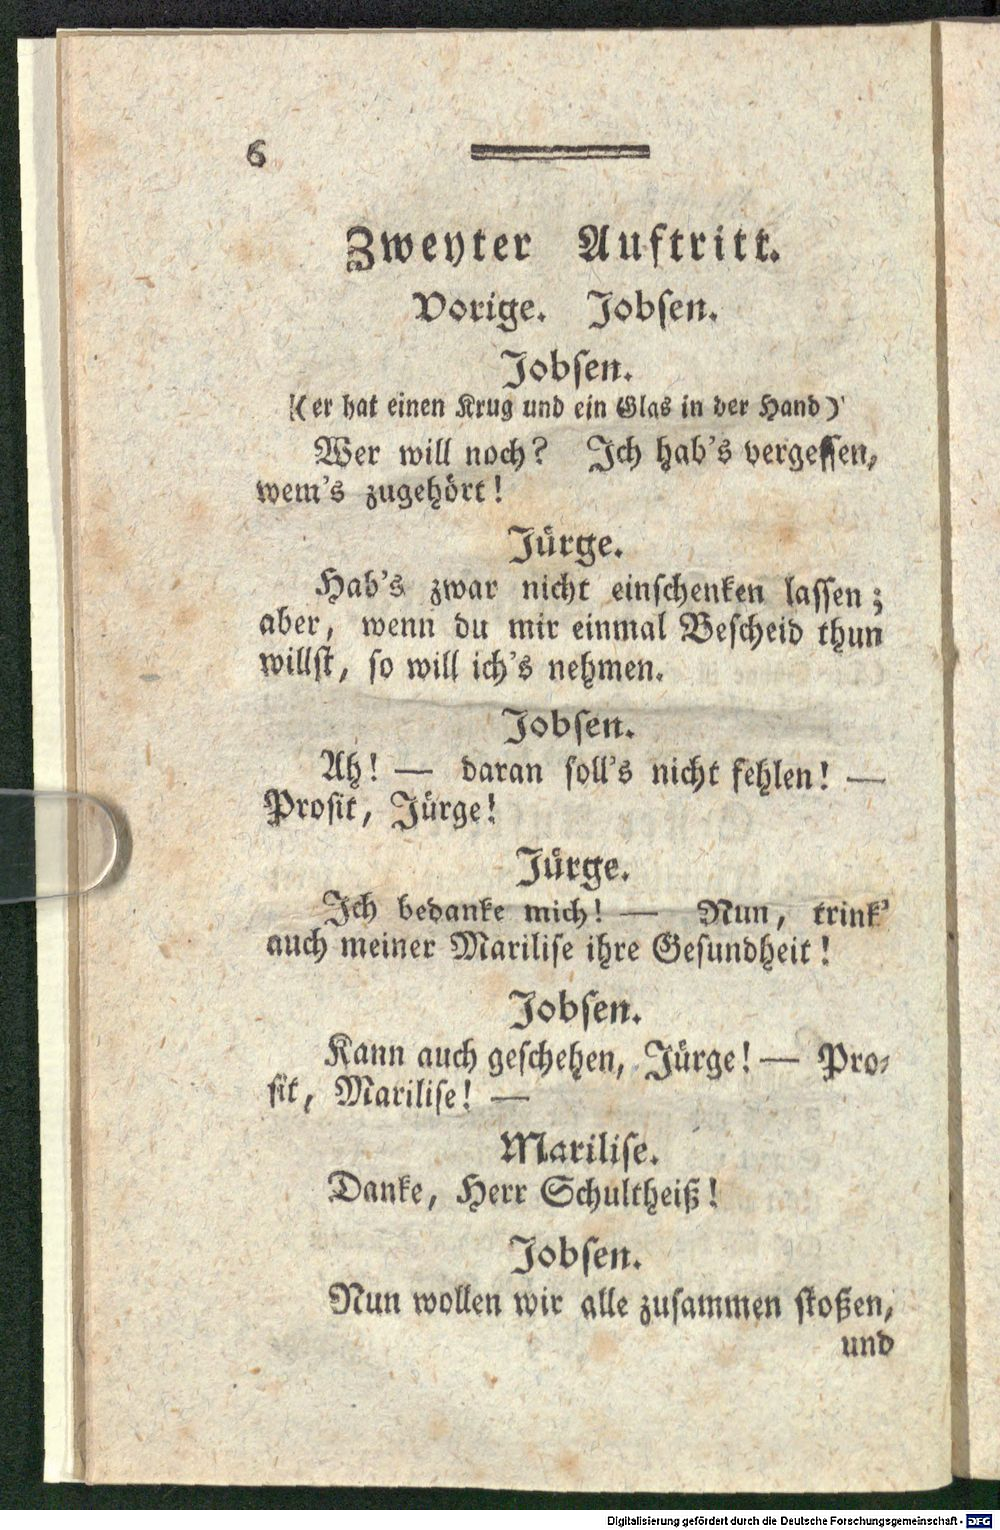 6
Zweyter Auftritt.
Vorige. Jobsen.
Jobsen.
(er hat einen Krug und ein Glas in der Hand)
Wer will noch? Ich hab's vergessen,
wem's zugehört!
Jürge.
Hab's zwar nicht einschenken lassen;
aber, wenn du mir einmal Bescheid thun
willst, so will ich's nehmen.
Jobsen.
Ah! — daran soll's nicht fehlen! —
Prosit, Jürge!
Jürge.
Ich bedanke mich! — Nun, trink'
auch meiner Marilise ihre Gesundheit!
Jobsen.
Kann auch geschehen, Jürge! — Pro-
sit, Marilise! —
Marilise.
Danke, Herr Schultheiß!
Jobsen.
Nun wollen wir alle zusammen stoßen,
und
Digitalisierung gefördert durch die Deutsche Forschungsgemeinschaft - DFG